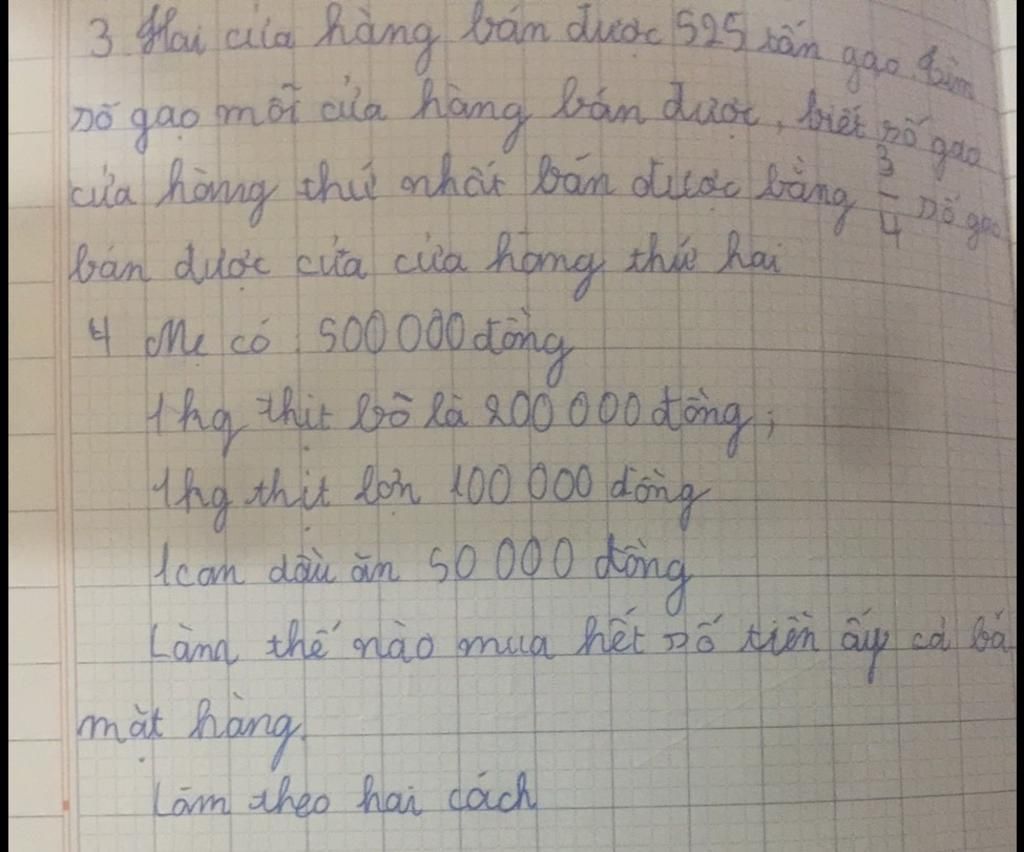 3 Hai cửa hàng bán được 525 tấn gạo. Tìm
số gạo mỗi cửa hàng bán được, biết số gạo
cửa hàng thứ nhất bán được bằng 3/4 số gạo
bán được của cửa hàng thứ hai
4 Mẹ có : 500 000 đồng
1kg thịt bò là 200 000 đồng;
1kg thịt lợn 100 000 đồng
1can dầu ăn 50 000 đồng
Làm thế nào mua hết số tiền ấy cả ba
mặt hàng.
Làm theo hai cách